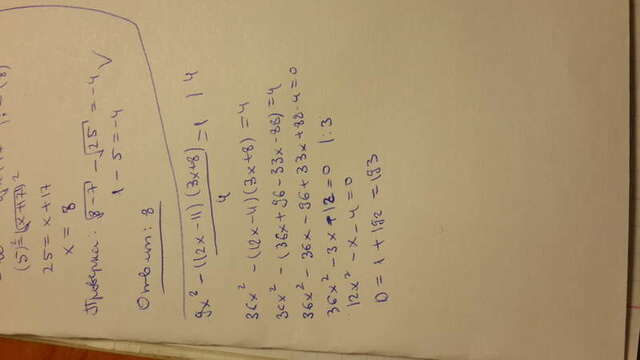 (5)² = (√x+17)²
25 = x+17
x = 8
Проверка: √8-7 - √25 = -4 √
1 - 5 = -4
Ответ: 8
9x² - (12x-11)(3x+8)/4 = 1 | 4
36x² - (12x-11)(3x+8) = 4
36x² - (36x + 96 - 33x - 88) = 4
36x² - 36x - 96 + 33x + 88 - 4 = 0
36x² - 3x + 12 = 0 | :3
12x² - x - 4 = 0
D = 1 + 192 = 193